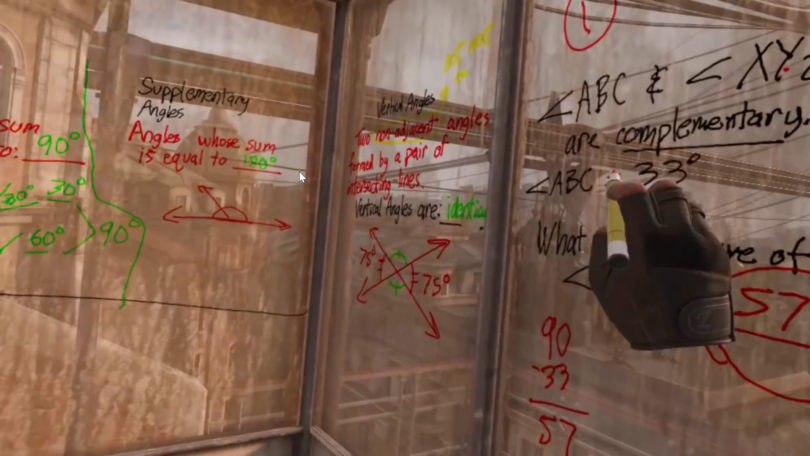 sum
o: 90°
60° 30°
60° 90°
Supplementary
Angles
Angles whose sum
is equal to 180°
Vertical Angles
Two non-adjacent angles
formed by a pair of
intersecting lines.
Vertical Angles are:
75°
75°
1
∠ABC & ∠XYZ
are complementary.
∠ABC 33°
What ve of
∠
57
90
-33
57